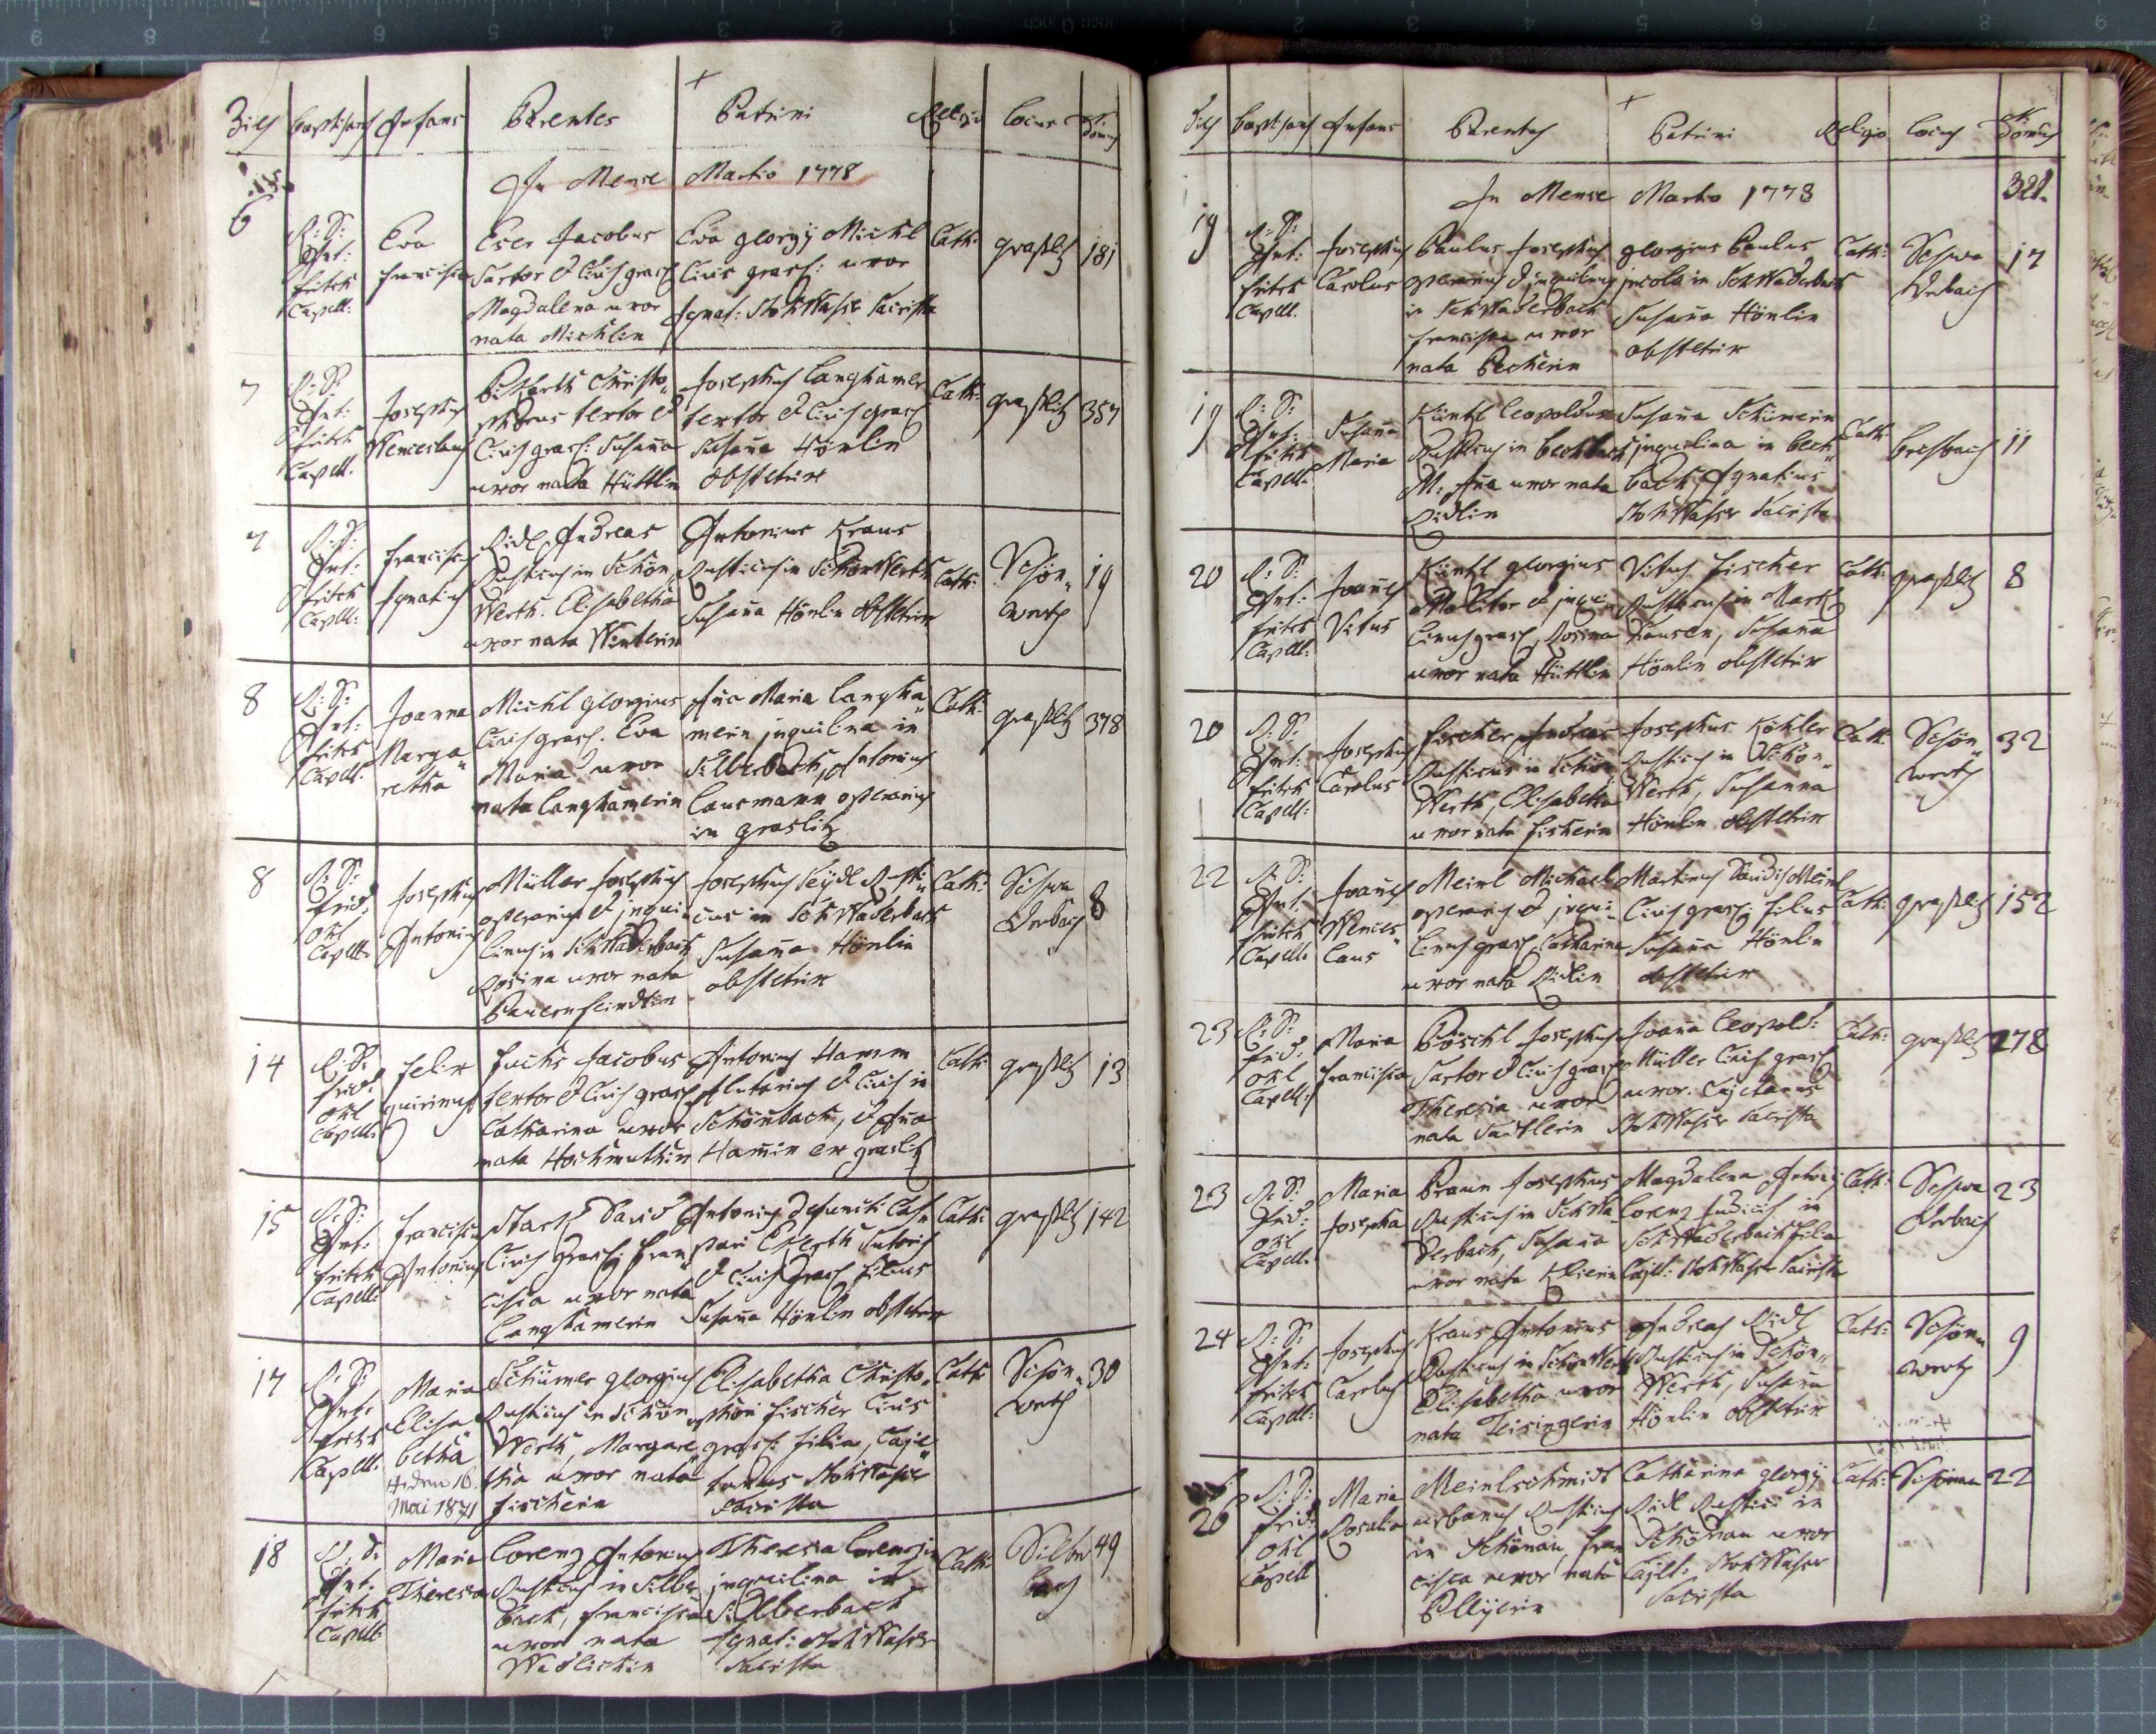 Dies baptisans Infans Parentes Patrini Religio Locus Nr. Domus
In Mense Martio 1778
6
R: D: Ant: fritsch Capell:
Eva Francisca
Eser Jacobus
Sartor & Civis grasl
Magdalena uxor
nata Michlin
Eva georgÿ Michl
Civis grasl: uxor
Ignat: Stohwasser Sacrista
Cath: graßlitz 181
7
R: D: Ant: fritsch Capell.
Josephus Wenceslaus
Christo„
phorus textor &
Civis grasl: Susaña
uxor nata Hüttlin
Josephus Langhamer
textor & Civis grasl
Susaña Hönlin
obstetrix
Cath: graßlitz 357
7
R: D: Ant: fritsch Capell:
Franciscus Ignatius
Ridl Andreas
Rusticus in Schön„
Werth. Elisabetha
uxor nata Winterin
Antonius Kraus
Rusticus in Schönwerth
Susaña Hönlin obstetrix
Cath: Schön„ werth 19
8
R: D: Ant: fritsch Capell:
Joanna Marga„ retha
Michl georgius
Civis grasl. Eva
Maria uxor
nata Langhamerin
Aña Maria Langha„
merin inquilina in
Silberbach, Antonius
Lausmann operarius
in graslitz
Cath: graßlitz 378
8
R: D: frid: Capell:
Josephus Antonius
Müller Josephus
operarius & inqui„
linus in Schwaderbach
Rosina uxor nata
Pauernfeindtin
Josephus Seÿdl Rusti„
cus in Schwaderbach
Susaña Hönlin
obstetrix
Cath: Schwa Derbach 8
14
R: D: frid: Capell:
felix quirinus
fuchs Jacobus
textor & Civis grasl
Catharina uxor
nata Hochmuthin
Antonius Hamm
& Civis in
Schönbach, & Aña
Hamin ex graslitz
Cath: graßlitz 13
15
R: D: Ant: fritsch Capell:
Franciscus Antonius
Stark David
Civis grasl: Fran„
cisca uxor nata
Langhamerin
Antonius defuncti Cas„
pari Sutoris
& Civis grasl filius
Susaña Hönlin obstetrix
Cath: graßlitz 142
17
R: D: Ant: fritsch Capell:
Maria Elisa„ betha
† den 16. Mai 1871
Schürmer georgius
Rusticus in Schön
Werth, Margare„
tha uxor nata
Fischerin
Elisabetha Christo„
phori Fischer Civis
grasl: filia, Caje„
tanus Stohwasser
Sacrista
Cath: Schön„ werth 30
18
R: D: Ant: fritsch Capell:
Maria Theresia
Lorenz Antonius
Rusticus in Silber
bach, Francisca
uxor nata
Theresia Lorenzin
inquilina in
Silberbach
Ignat: Stohwasser
Sacrista
Cath: Silber bach 49
Dies baptisans Infans Parentes Patrini Religio Locus Nr. Domus
In Mense Martio 1778
321.
19
R: D: Ant: fritsch Capell.
Josephus Carolus
Paulus Josephus
operarius & inquilinus
in Schwaderbach
Francisca uxor
nata Pecherin
georgius Paulus
incola in Schwaderbach
Susaña Hönlin
obstetrix
Cath: Schwa Derbach 17
19
R: D: Ant: fritsch Capell:
Susaña Maria
Küntzl Leopoldus
Rusticus in
M: Aña uxor nata
Ridlin
Susaña Schürmerin
inquilina in
bach, Ignatius
Stohwasser Sacrista
Cath: 11
20
R: D: Ant: fritsch Capell:
Joañes Vitus
Küntzl georgius
Molitor & inqui„
linus grasl, Rosina
uxor nata Hüttlin
Vitus Fischer
Rusticus in Mark
hausen, Susaña
Hönlin obstetrix
Cath: graßlitz 8
20
R: D: Ant: fritsch Capell:
Josephus Carolus
Fischer Andreas
Rusticus in Schön
Werth, Elisabetha
uxor nata Fischerin
Josephus Köhler
Rusticus in Schön„
Werth, Susanna
Hönlin obstetrix
Cath. Schön„ werth 32
22
R: D: Ant: fritsch Capell:
Joañes Wences„ laus
Meinl Michael
operarius & inqui„
linus grasl, Catharina
uxor nata Ridlin
Martinus Davidis Meinl
Civis grasl: filius
Susaña Hönlin
obstetrix
Cath: graßlitz 152
23
R: D: frid: Capell:
Maria Francisca
Pöschl Josephus
Sartor & Civis grasl
Theresia uxor
nata Sattlerin
Joaña Leopold:
Müller Civis grasl
uxor. Cajetanus
Stohwasser Sacrista
Cath: graßlitz 278
23
R: D: frid: Capell:
Maria Josepha
Braun Josephus
Rusticus in Schwa„
derbach, Susaña
uxor nata
Magdalena Antonÿ
Lorenz Judicis in
Schwaderbach filia
Cajet: Stohwasser Sacrista
Cath: Schwa Derbach 23
24
R: D: Ant: fritsch Capell:
Josephus Carolus
Kraus Antonius
Rusticus in Schönwerth
Elisabetha uxor
nata Teisingerin
Andreas Ridl
Rusticus in Schön„
Werth, Susaña
Hönlin obstetrix
Cath: Schön„ werth 9
26
R: D: frid: Capell
Maria Rosalia
Meinlschmidt
urbanus Rusticus
in Schönau, Fran
cisca uxor nata
Catharina georgÿ
Ridl Rustici in
Schönau uxor
Cajet: Stohwasser
Sacrista
Cath: Schönau 22